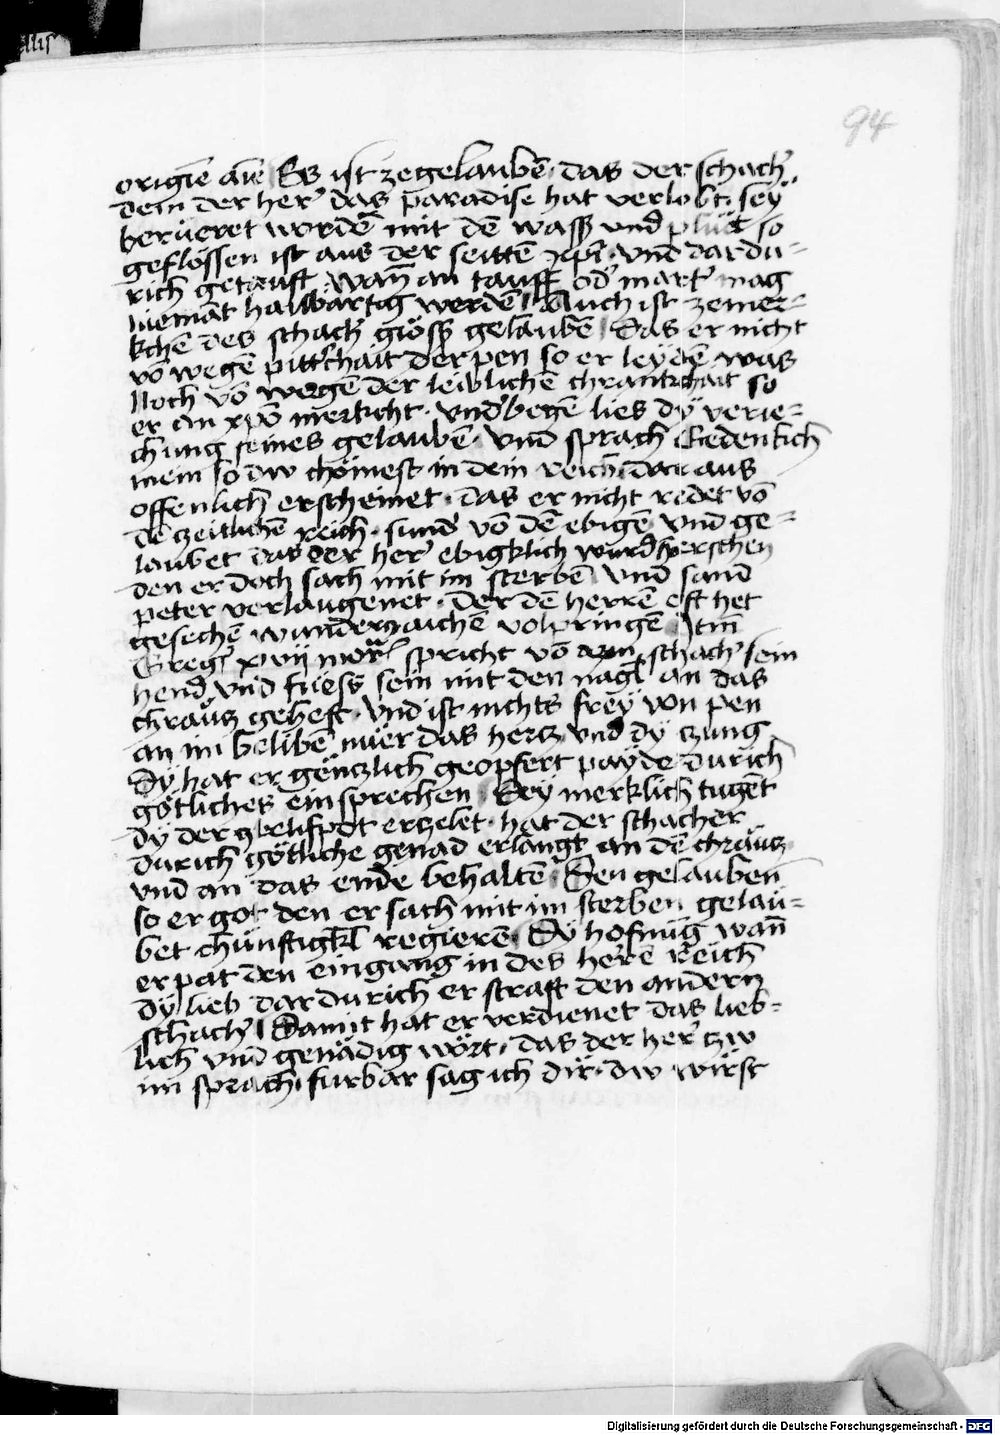 94
origiē auē Es ist zegelaubē · das der schach̕
dem der her̕ das paradise hat verlobt · sey
berüeret wordē mit dē wass̕ vnd plüet so
geflossen ist aus der seittē xp̄i · vnd dardu-
rich getauft · wan̄ an tauff od̕ mart̕ mag
niemāt hailbärtig werdē / Auch ist zemer-
kchē des schach̕ gröss̕ gelaubē / Das er nicht
vō wegē pitt̕chait der pen so er leydē was
Noch vō wegē der leiblichē chrankchait so
er an xp̄o merkcht · vnd̕begē lies dy verie-
chung seines gelaubē · vnd sprach Gedenkch
mein so dw chömest in dein reich dar aus
offenlich erscheinet · das er nicht redet vō
dē zeitlichē reich · sund̕ vō dē ebigē vnd ge-
laubet das der her̕ ebigklich wurd herschen
den er doch sach mit im sterbē vnd sand
peter verlaugenet · der dē herrē oft het
gesechē wunderzaichē volpringē Itm̄
Greg̕ xviij mor̕ spricht vō dem schach̕ sein
hend vnd füess sein mit den nagl̕ an das
chräutz geheft · vnd ist nichts frey von pen
an im belibē nüer das hertz vnd dy tzung
Dy hat er gëntzlich geopfert payde durich
götliches einsprechen / Drey merklich tugēt
dy der zbelifpot ertzelet · hat der schacher
durich götliche genad erlangt an dē chräutz
vnd an das ende behaltē · Den gelauben
so er got den er sach mit im sterben gelau-
bet chünftigkl̕ regierē · Dy hofnūg wan̄
er pat den eingang in des herrē reich
dy lieb dardurich er straft den andern
schach̕ / Damit hat er verdienet das lieb-
lich vnd genädig wört · das der her̕ tzw
im sprach · furbar sag ich dir · dw wirst
Digitalisierung gefördert durch die Deutsche Forschungsgemeinschaft - DFG